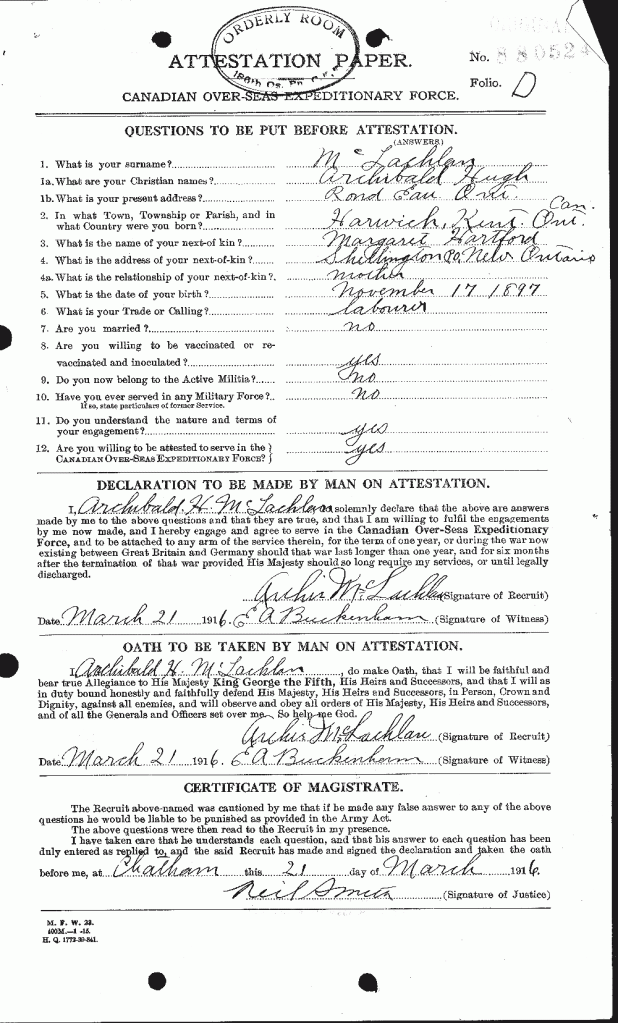 ORDERLY ROOM
186th
ATTESTATION PAPER.
No. 880524
Folio. D
CANADIAN OVER-SEAS EXPEDITIONARY FORCE.
QUESTIONS TO BE PUT BEFORE ATTESTATION.
(ANSWERS)
1. What is your surname? McLachlan
1a. What are your Christian names? Archibald Hugh
1b. What is your present address? Rond Eau Ont
2. In what Town, Township or Parish, and in
what Country were you born? Harwich, Kent. Ont. Can.
3. What is the name of your next-of kin? Margaret Hartford
4. What is the address of your next-of-kin? Shillington P.O. New Ontario
4a. What is the relationship of your next-of-kin? mother
5. What is the date of your birth? November 17 1897
6. What is your Trade or Calling? labourer
7. Are you married? no
8. Are you willing to be vaccinated or re-
vaccinated and inoculated? yes
9. Do you now belong to the Active Militia? no
10. Have you ever served in any Military Force? no
If so, state particulars of former Service.
11. Do you understand the nature and terms of
your engagement? yes
12. Are you willing to be attested to serve in the } yes
CANADIAN OVER-SEAS EXPEDITIONARY FORCE? }
DECLARATION TO BE MADE BY MAN ON ATTESTATION.
I, Archibald. H. McLachlan, do solemnly declare that the above are answers
made by me to the above questions and that they are true, and that I am willing to fulfil the engagements
by me now made, and I hereby engage and agree to serve in the Canadian Over-Seas Expeditionary
Force, and to be attached to any arm of the service therein, for the term of one year, or during the war now
existing between Great Britain and Germany should that war last longer than one year, and for six months
after the termination of that war provided His Majesty should so long require my services, or until legally
discharged.
Archie McLachlan (Signature of Recruit)
Date March 21 1916. E A Buckenham (Signature of Witness)
OATH TO BE TAKEN BY MAN ON ATTESTATION.
I, Archibald H. McLachlan, do make Oath, that I will be faithful and
bear true Allegiance to His Majesty King George the Fifth, His Heirs and Successors, and that I will as
in duty bound honestly and faithfully defend His Majesty, His Heirs and Successors, in Person, Crown and
Dignity, against all enemies, and will observe and obey all orders of His Majesty, His Heirs and Successors,
and of all the Generals and Officers set over me. So help me God.
Archie McLachlan (Signature of Recruit)
Date March 21 1916. E A Buckenham (Signature of Witness)
CERTIFICATE OF MAGISTRATE.
The Recruit above-named was cautioned by me that if he made any false answer to any of the above
questions he would be liable to be punished as provided in the Army Act.
The above questions were then read to the Recruit in my presence.
I have taken care that he understands each question, and that his answer to each question has been
duly entered as replied to, and the said Recruit has made and signed the declaration and taken the oath
before me, at Chatham this 21 day of March 1916.
Neil Smith (Signature of Justice)
M. F. W. 23.
H. Q. 1772-39-841.